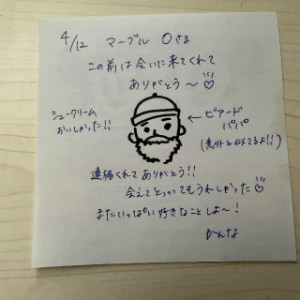 4/12 マーブル Oさま
この前は会いに来てくれて
ありがとう〜♡
シュークリーム
おいしかった!!
← ビアード
パパ
(意外と似てるよ!!)
連絡くれてありがとう!!
会えてとってもうれしかった♡
またいっぱい好きなことしよ〜!
かんな